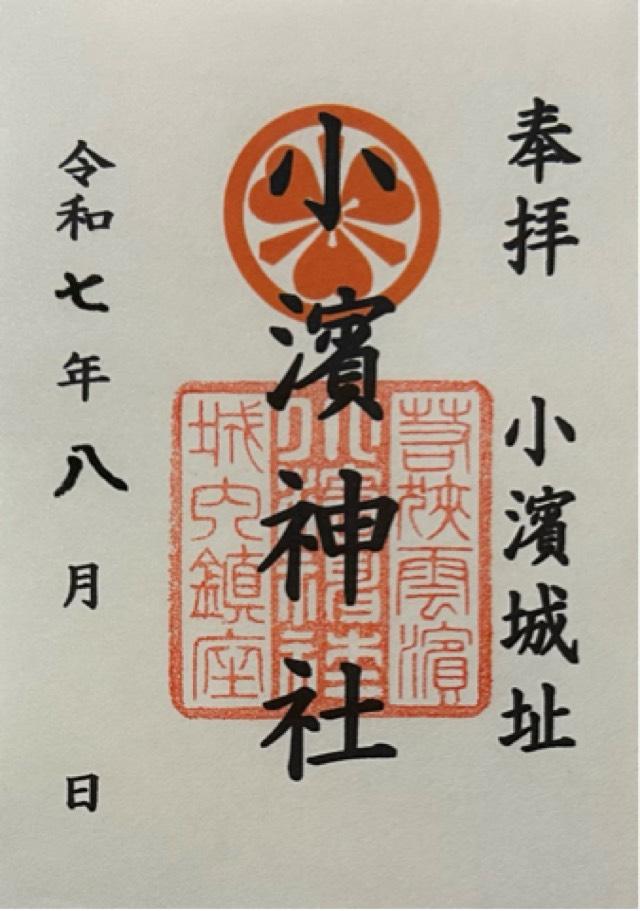 奉拝
小濱城址
小濱神社
若狹雲濱
小濱神社
城内鎮座
令和七年八月 日